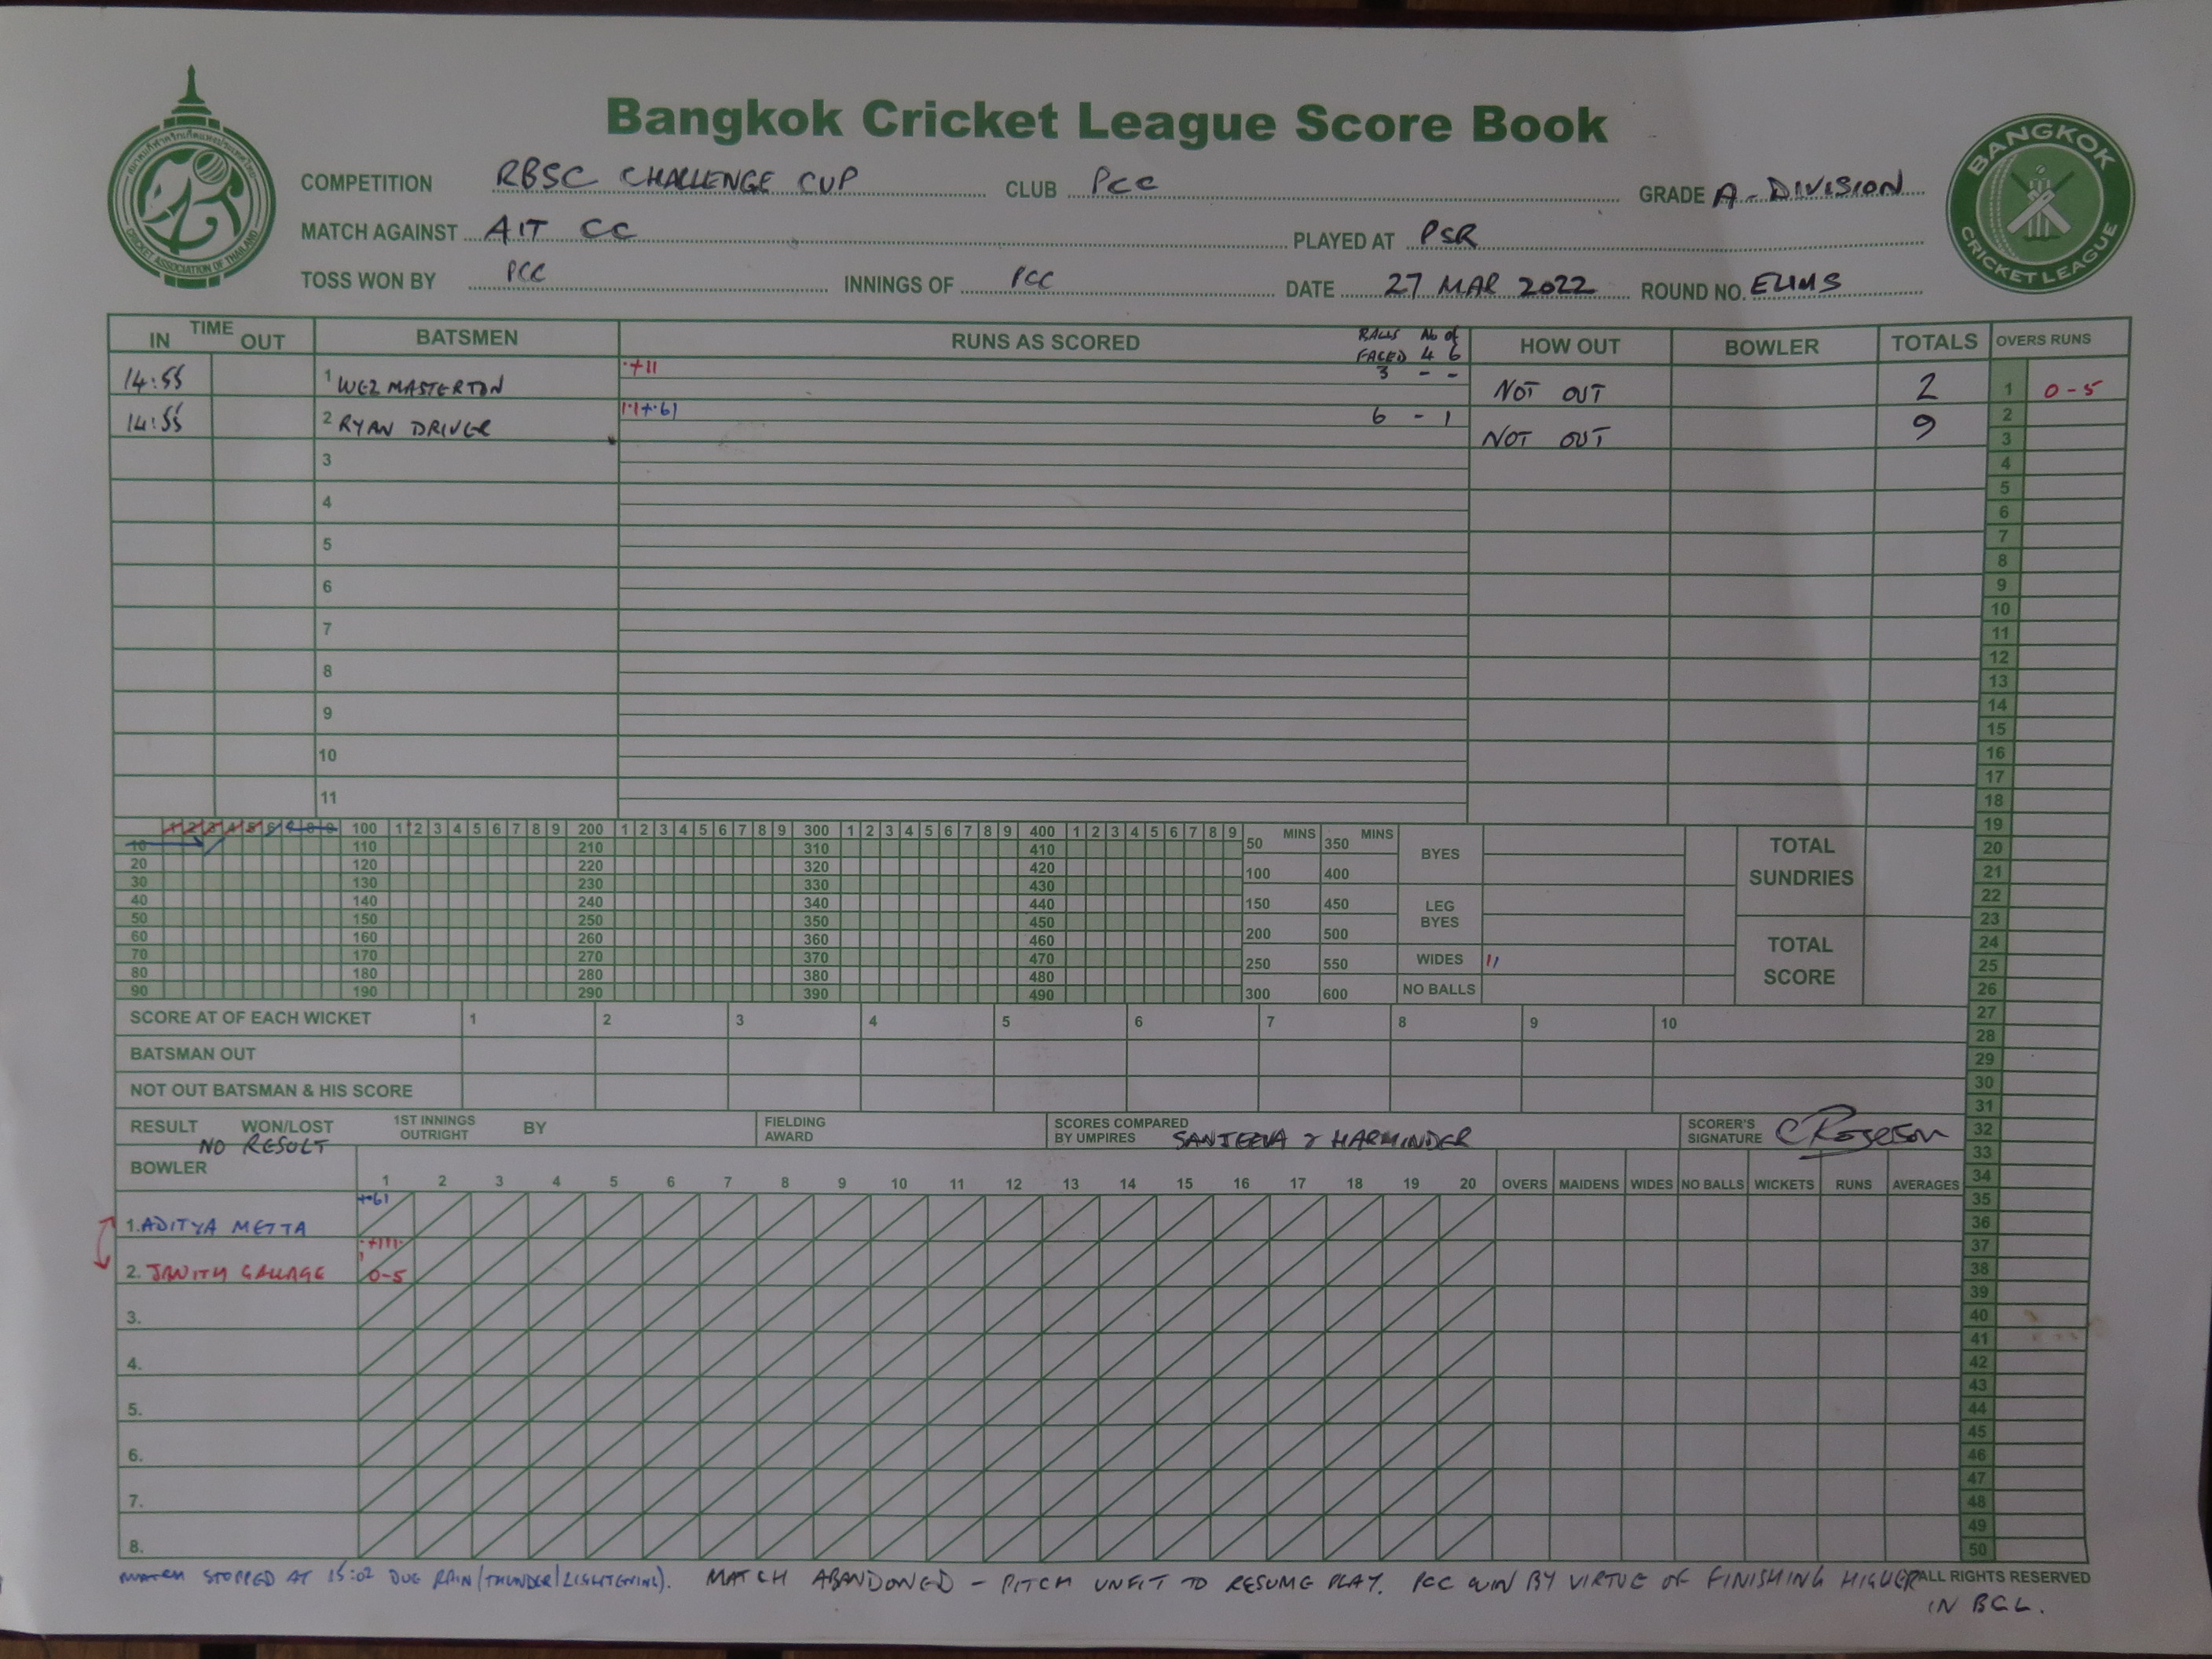 Bangkok Cricket League Score Book
COMPETITION RBSC CHALLENGE CUP CLUB PCC GRADE A - DIVISION
MATCH AGAINST AIT CC PLAYED AT PSR
TOSS WON BY PCC INNINGS OF PCC DATE 27 MAR 2022 ROUND NO. ELIMS
BANGKOK CRICKET LEAGUE
CRICKET ASSOCIATION OF THAILAND
TIME IN OUT BATSMEN RUNS AS SCORED BALLS FACED No of 4 6 HOW OUT BOWLER TOTALS OVERS RUNS
14:55 1 WEZ MASTERTON ·+11 3 - - NOT OUT 2 1 0-5
14:55 2 RYAN DRIVER 1·1+·61 6 - 1 NOT OUT 9 2
3
3 4
4 5
6
5 7
8
6 9
10
7 11
8 12
13
9 14
15
10 16
17
11 18
1 2 3 4 5 6 7 8 9 100 1 2 3 4 5 6 7 8 9 200 1 2 3 4 5 6 7 8 9 300 1 2 3 4 5 6 7 8 9 400 1 2 3 4 5 6 7 8 9 MINS MINS 19
10 110 210 310 410 50 350 BYES TOTAL SUNDRIES 20
20 120 220 320 420 100 400 21
30 130 230 330 430 22
40 140 240 340 440 150 450 LEG BYES
50 150 250 350 450 23
60 160 260 360 460 200 500 TOTAL SCORE 24
70 170 270 370 470 250 550 WIDES 11 25
80 180 280 380 480
90 190 290 390 490 300 600 NO BALLS 26
SCORE AT OF EACH WICKET 1 2 3 4 5 6 7 8 9 10 27
28
BATSMAN OUT 29
NOT OUT BATSMAN & HIS SCORE 30
31
RESULT WON/LOST 1ST INNINGS OUTRIGHT BY FIELDING AWARD SCORES COMPARED BY UMPIRES SANJEEVA & HARMINDER SCORER'S SIGNATURE 32
NO RESULT
33
BOWLER 1 2 3 4 5 6 7 8 9 10 11 12 13 14 15 16 17 18 19 20 OVERS MAIDENS WIDES NO BALLS WICKETS RUNS AVERAGES 34
35
1. ADITYA METTA +·61 36
37
2. JANITH GALLAGE ·+111· 1 0-5 38
39
3. 40
41
4. 42
43
5. 44
45
6. 46
47
7. 48
49
8. 50
MATCH STOPPED AT 15:02 DUE RAIN/THUNDER/LIGHTENING). MATCH ABANDONED - PITCH UNFIT TO RESUME PLAY. PCC WIN BY VIRTUE OF FINISHING HIGHER IN BCL.
ALL RIGHTS RESERVED